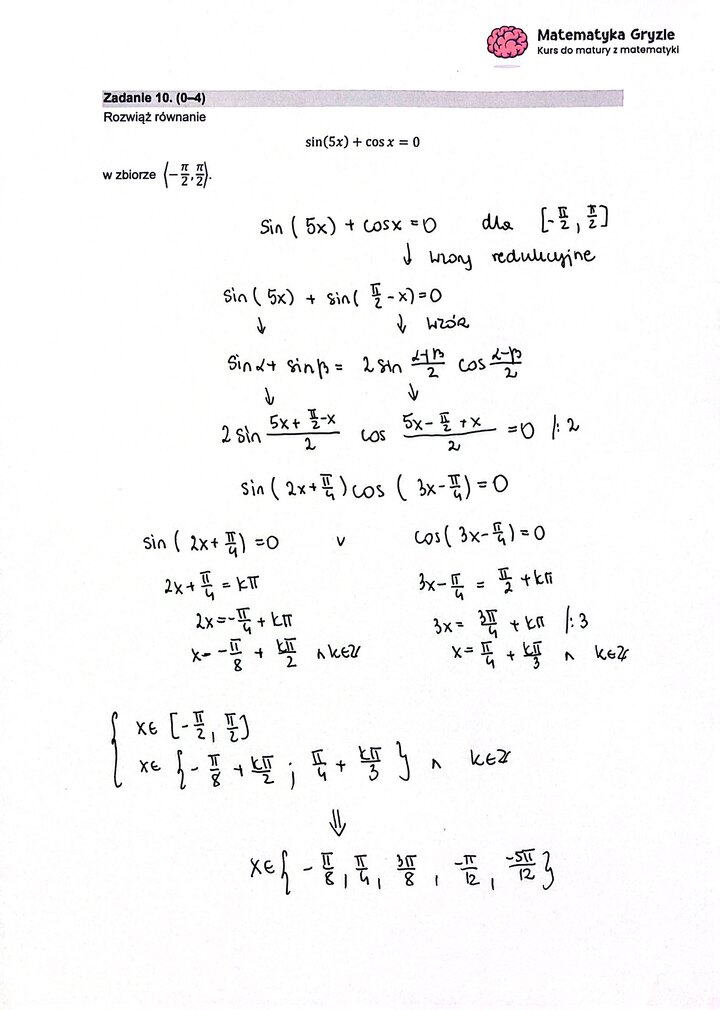 Matematyka Gryzie
Kurs do matury z matematyki
Zadanie 10. (0–4)
Rozwiąż równanie
sin(5x) + cos x = 0
w zbiorze ⟨−π/2, π/2⟩.
sin(5x) + cosx = 0 dla [-π/2, π/2]
↓ wzory redukcyjne
sin(5x) + sin(π/2 - x) = 0
↓ ↓ wzór
sinα + sinβ = 2 sin (α+β)/2 cos (α-β)/2
↓ ↓
2 sin (5x + π/2 - x)/2 cos (5x - π/2 + x)/2 = 0 /:2
sin(2x + π/4) cos(3x - π/4) = 0
sin(2x + π/4) = 0 v cos(3x - π/4) = 0
2x + π/4 = kπ 3x - π/4 = π/2 + kπ
2x = -π/4 + kπ 3x = 3π/4 + kπ /:3
x = -π/8 + kπ/2 ∧ k∈ℤ x = π/4 + kπ/3 ∧ k∈ℤ
{ x∈ [-π/2, π/2]
x∈ {-π/8 + kπ/2 ; π/4 + kπ/3} ∧ k∈ℤ
⇓
x∈ {-π/8, π/4, 3π/8, -π/12, -5π/12}